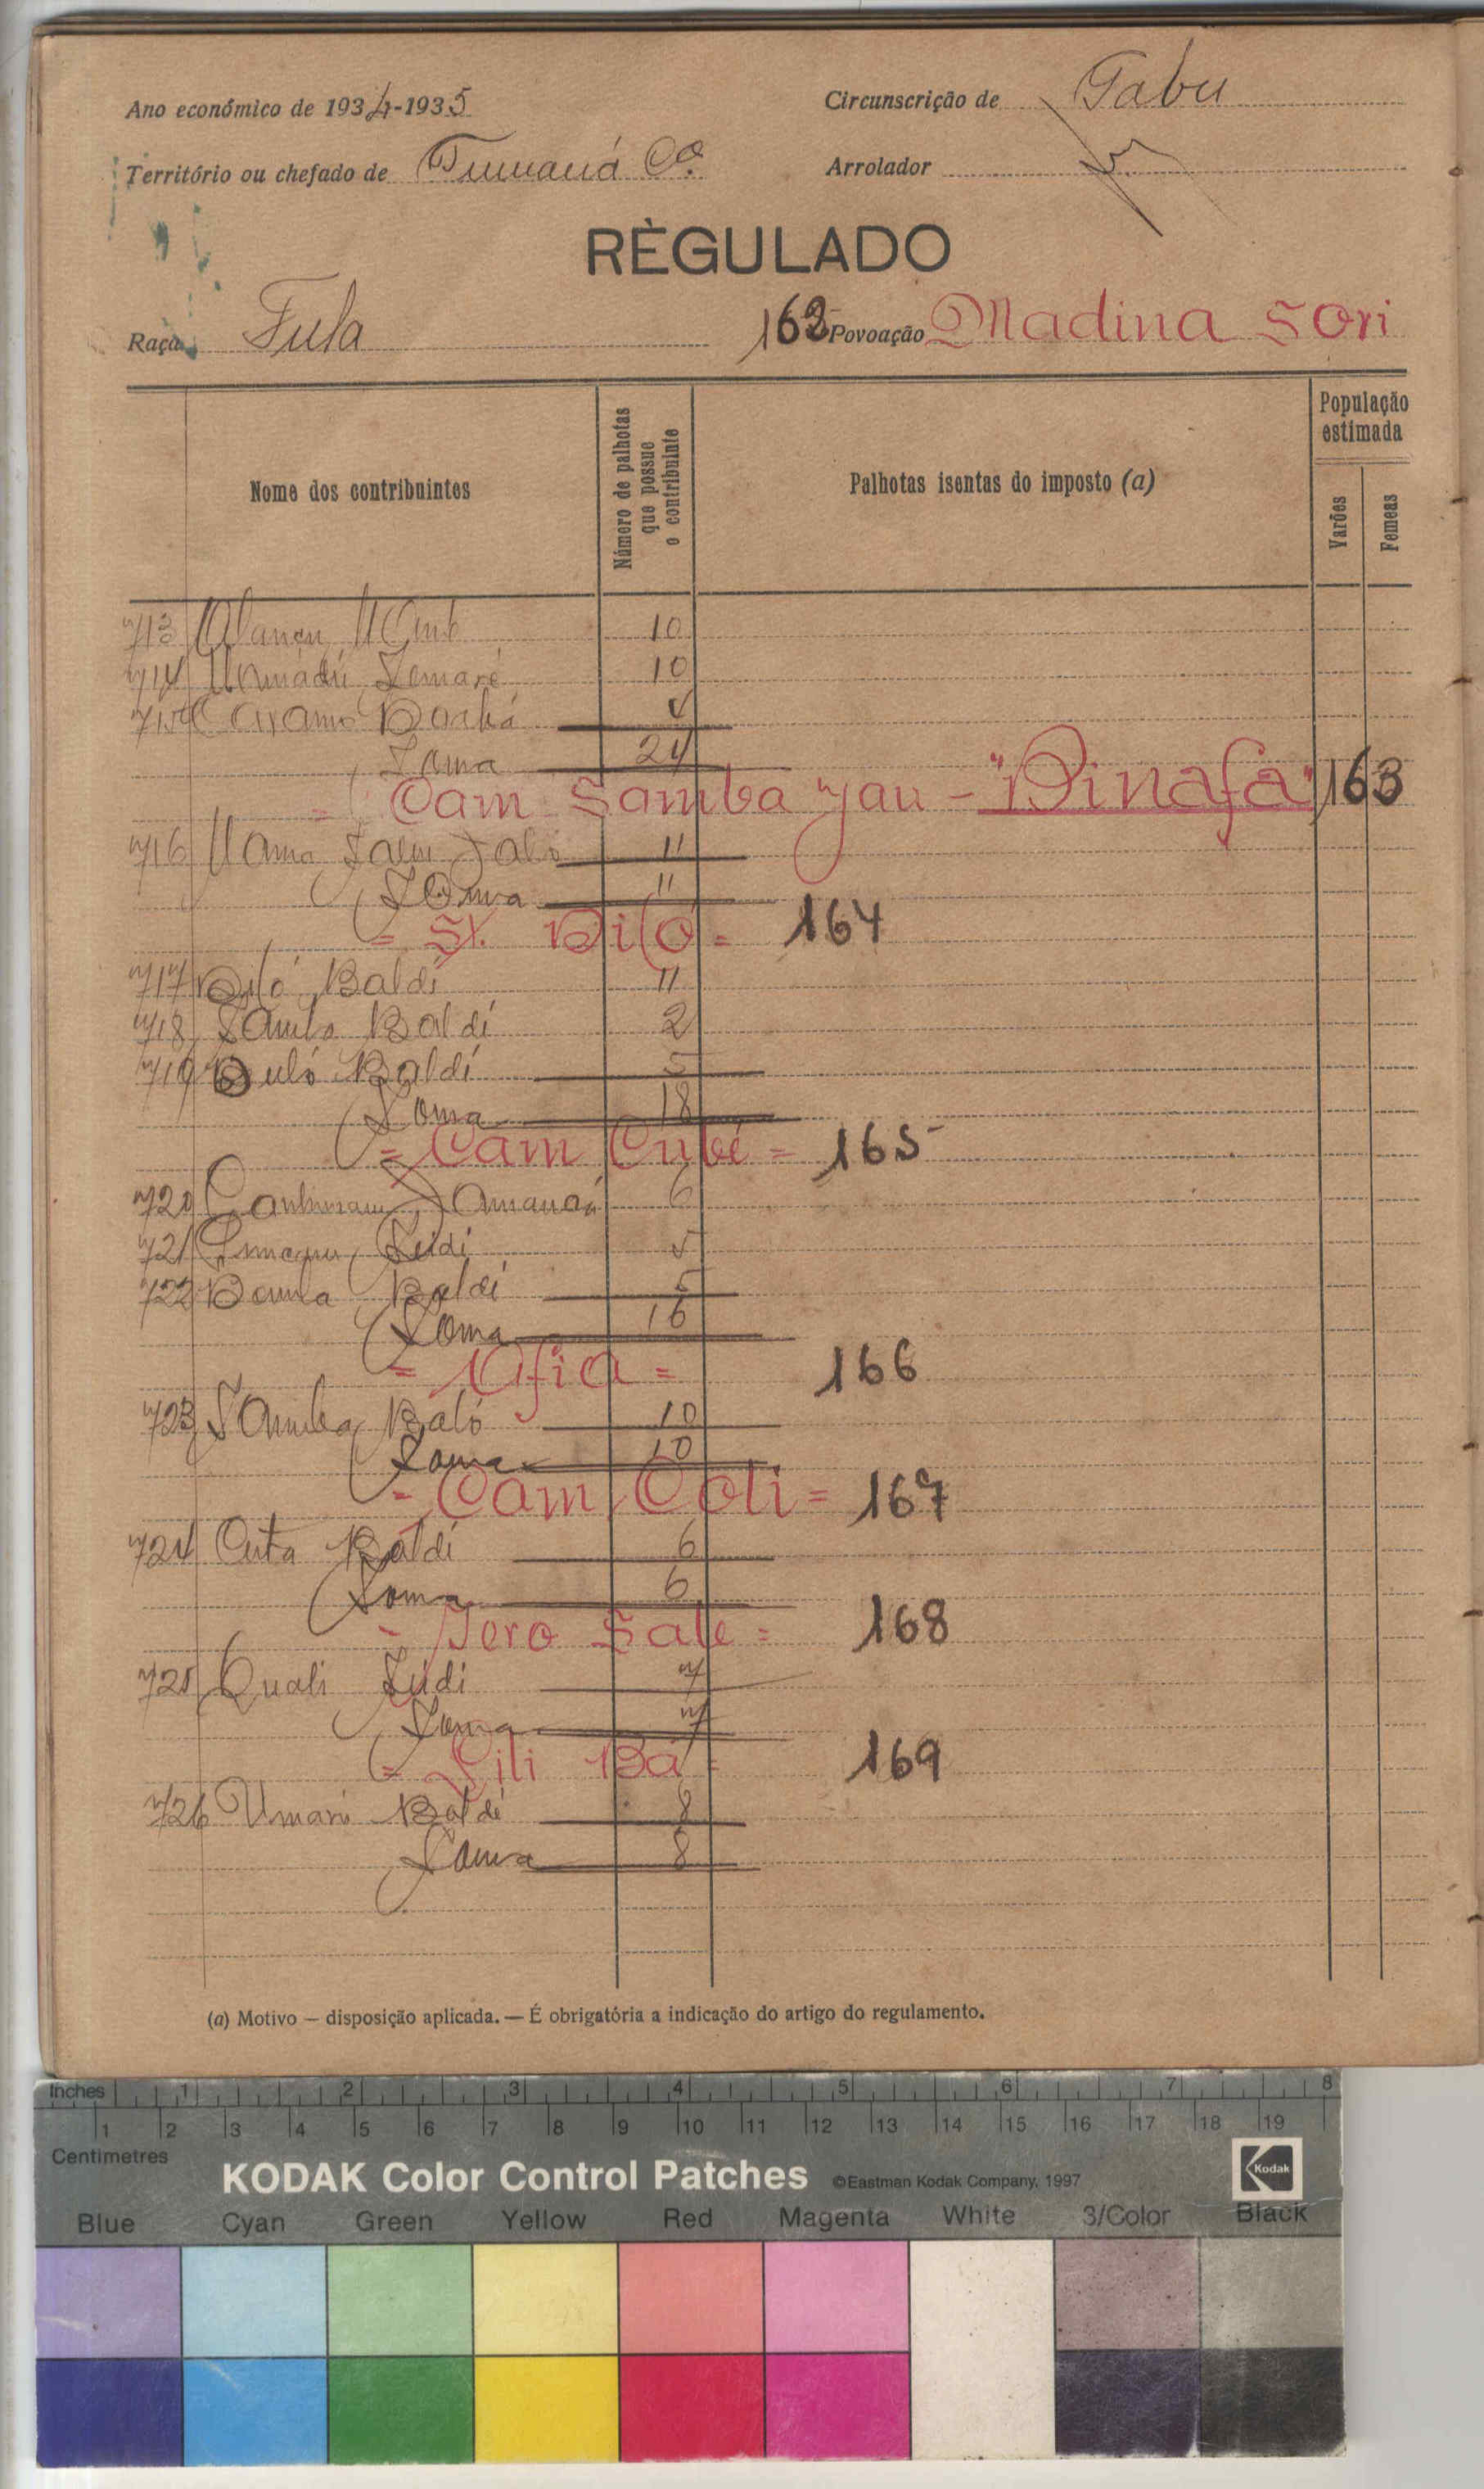 Ano económico de 1934-1935
Circunscrição de Gabu
Território ou chefado de Tumaná Cª.
Arrolador
RÈGULADO
Raça Fula
162 Povoação Madina Sori
Nome dos contribuintes
Número de palhotas que possue o contribuinte
Palhotas isentas do imposto (a)
População estimada
Varões
Femeas
713 10
714 Mamadú 10
715 4
Soma 24
= Cam Samba Jau - "Dinafa" 163
716 11
Soma 11
= St. Diló = 164
717 Diló Baldé 11
718 Samba Baldé 2
719 Duló Baldé 5
Soma 18
= Cam Cubé = 165
720 6
721 Seidi 5
722 Demba Baldé 5
Soma 16
= Afia = 166
723 Samba Baló 10
Soma 10
= Cam Coli = 167
724 Cuta Baldé 6
Soma 6
= Jero Sale = 168
725 Quali Seidi 7
Soma 7
= Sili Bá = 169
726 Umaro Baldé 8
Soma 8
(a) Motivo — disposição aplicada. — É obrigatória a indicação do artigo do regulamento.
Inches 1 2 3 4 5 6 7 8
1 2 3 4 5 6 7 8 9 10 11 12 13 14 15 16 17 18 19
Centimetres
KODAK Color Control Patches ©Eastman Kodak Company, 1997 Kodak
Blue Cyan Green Yellow Red Magenta White 3/Color Black